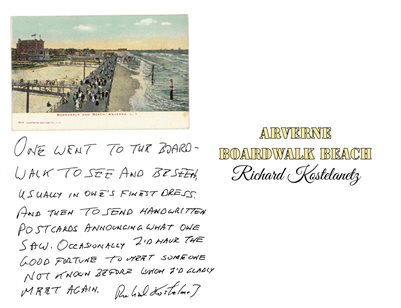 BOARDWALK AND BEACH, ARVERNE, L. I.
ONE WENT TO THE BOARD-
WALK TO SEE AND BE SEEN,
USUALLY IN ONE'S FINEST DRESS,
AND THEN TO SEND HANDWRITTEN
POSTCARDS ANNOUNCING WHAT ONE
SAW. OCCASIONALLY I'D HAVE THE
GOOD FORTUNE TO MEET SOMEONE
NOT KNOWN BEFORE WHOM I'D GLADLY
MEET AGAIN. Richard Kostelanetz
ARVERNE
BOARDWALK BEACH
Richard Kostelanetz